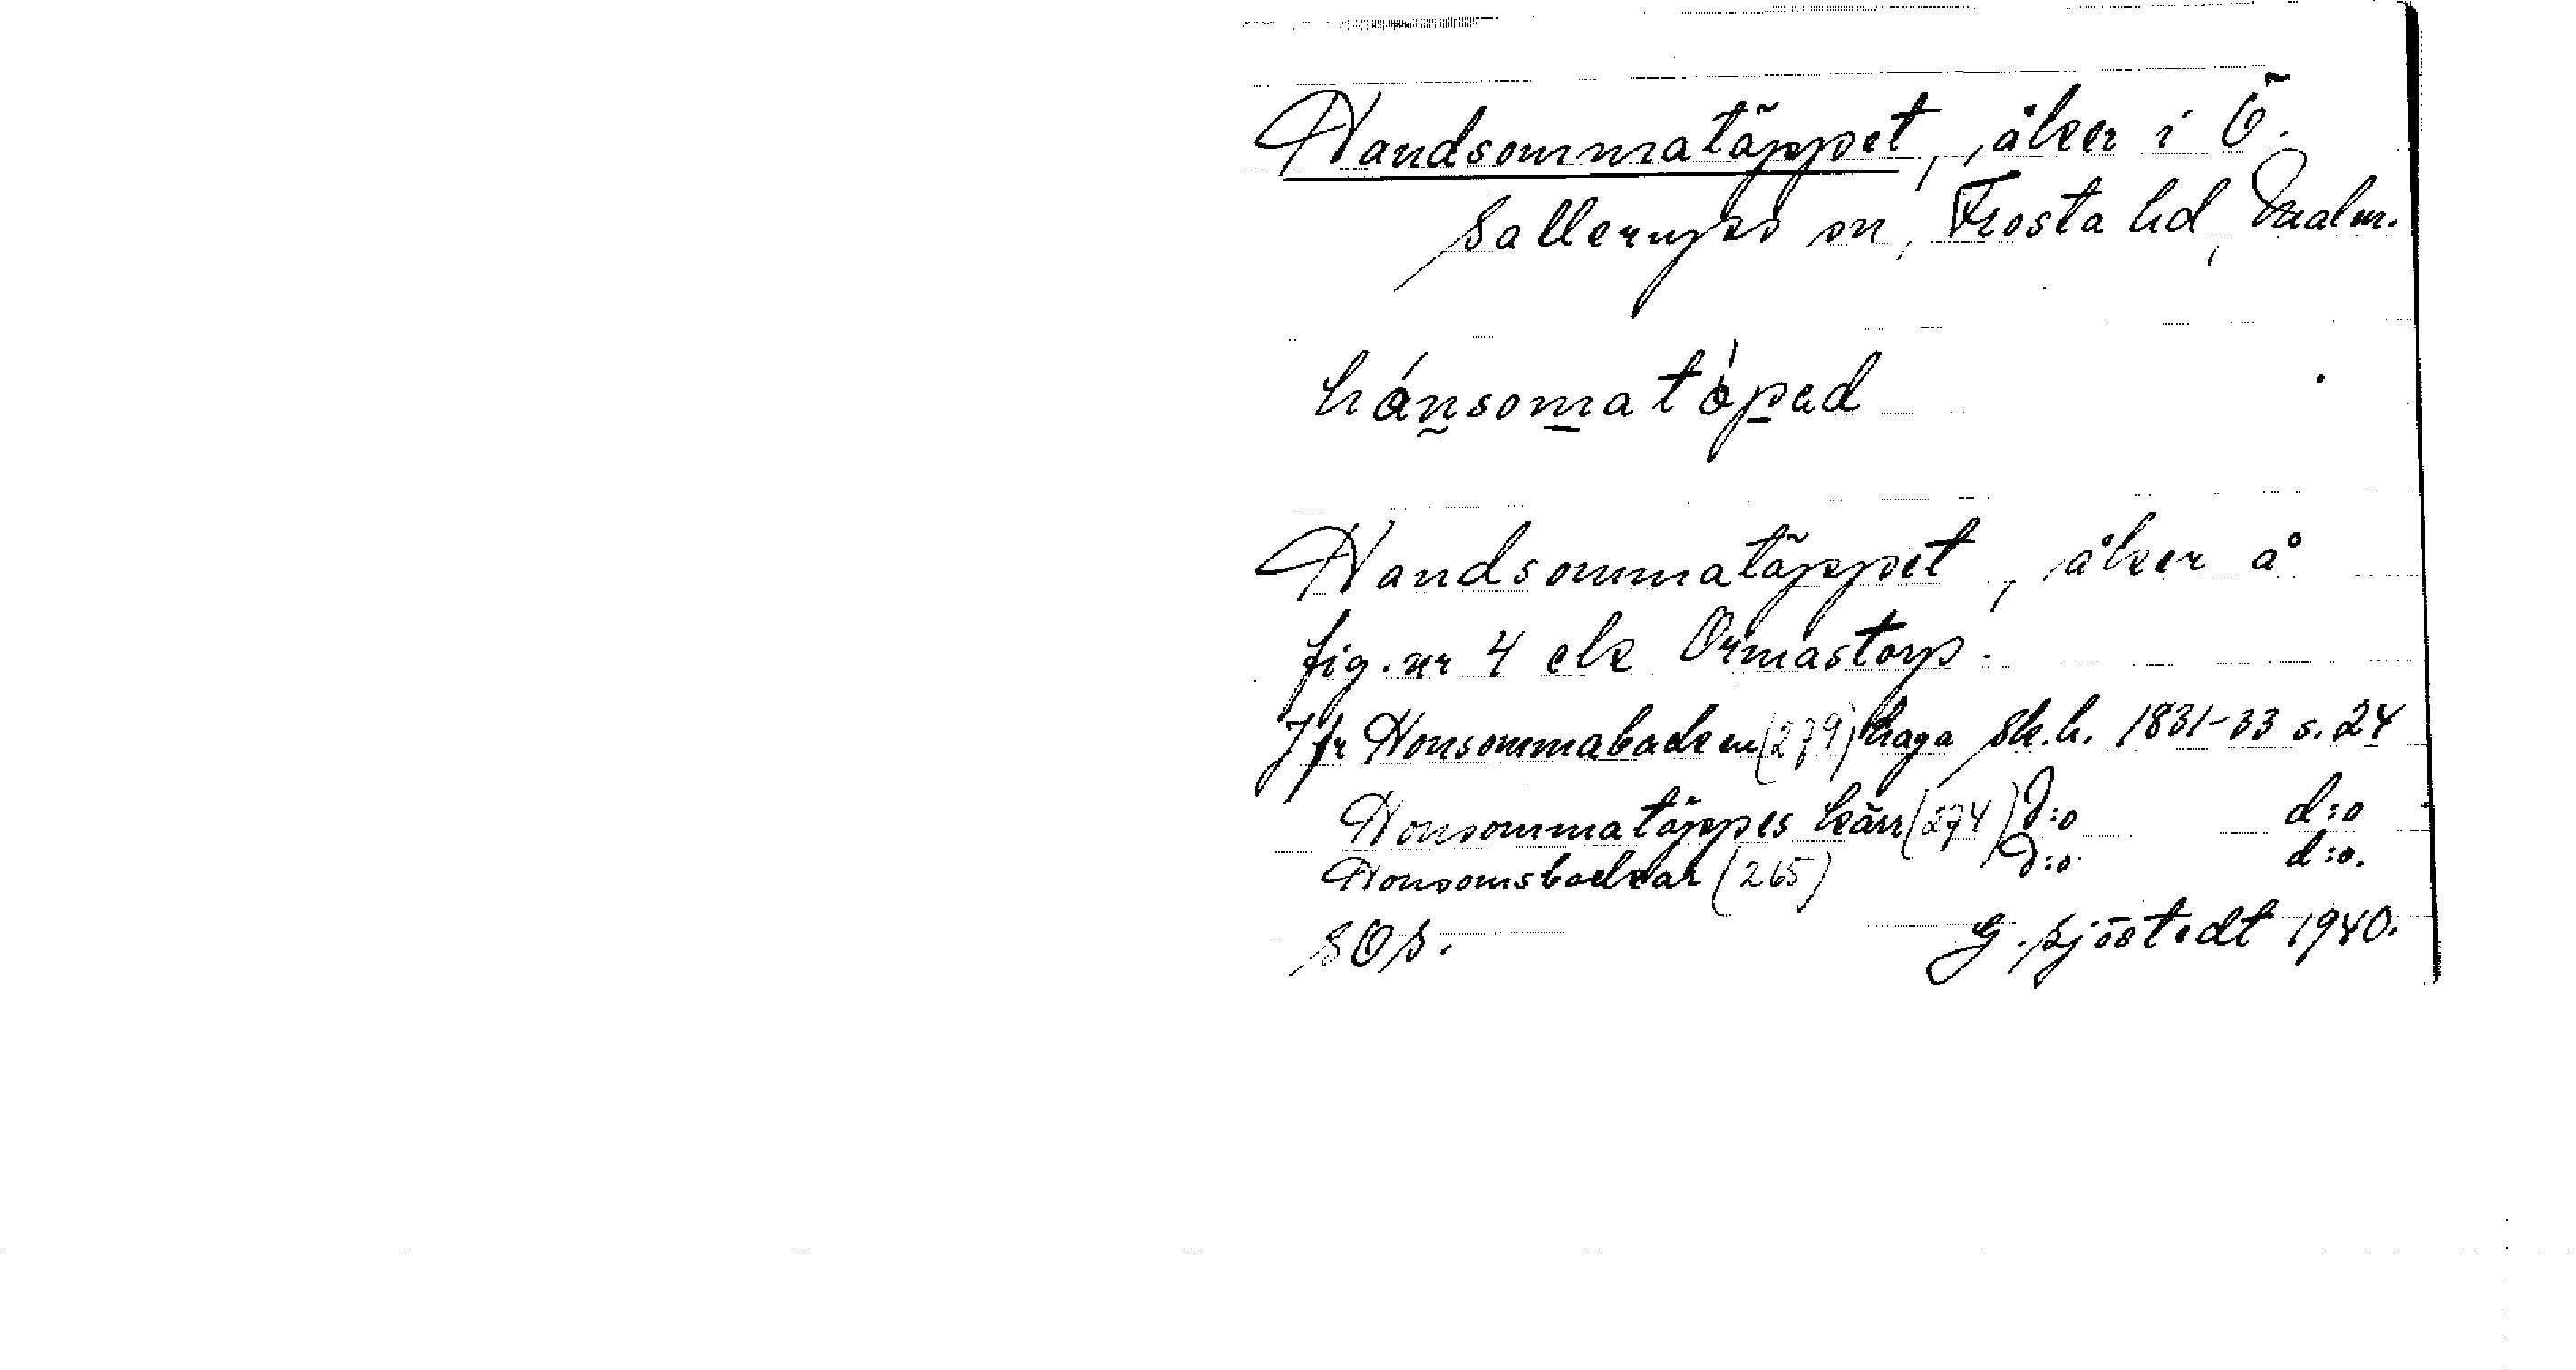 Handsommatäppet, åker i Ö.
Sallerups sn, Frosta hd, Malm.
hánsomatǿpəd
Handsommatäppet, åker å
fig. nr 4 elr Ormastorp.
Jfr Honsommabacken (279) haga Sk.h. 1831-33 s. 24
Honsommatäppes kärr (274) D:o d:o
Honsomsbackar (265) D:o d:o.
SOS. G. Sjöstedt 1940.